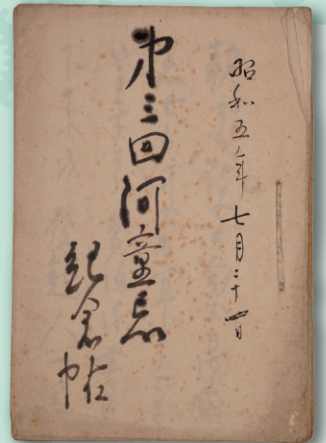 昭和五年七月二十四日
第三回河童忌
記名帖